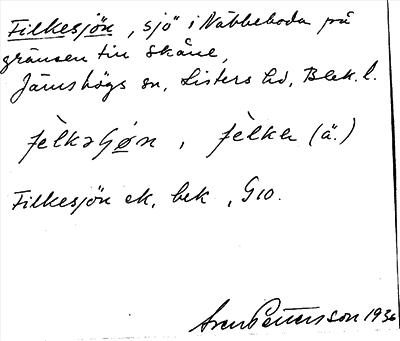 Filkesjön, sjö i Näbbeboda på
gränsen till Skåne,
Jämshögs sn, Listers hd, Blek. l.
fèlkəʃøn, fèlka (ä.)
Filkesjön ek. bek., G10.
Sven Pettersson 1936